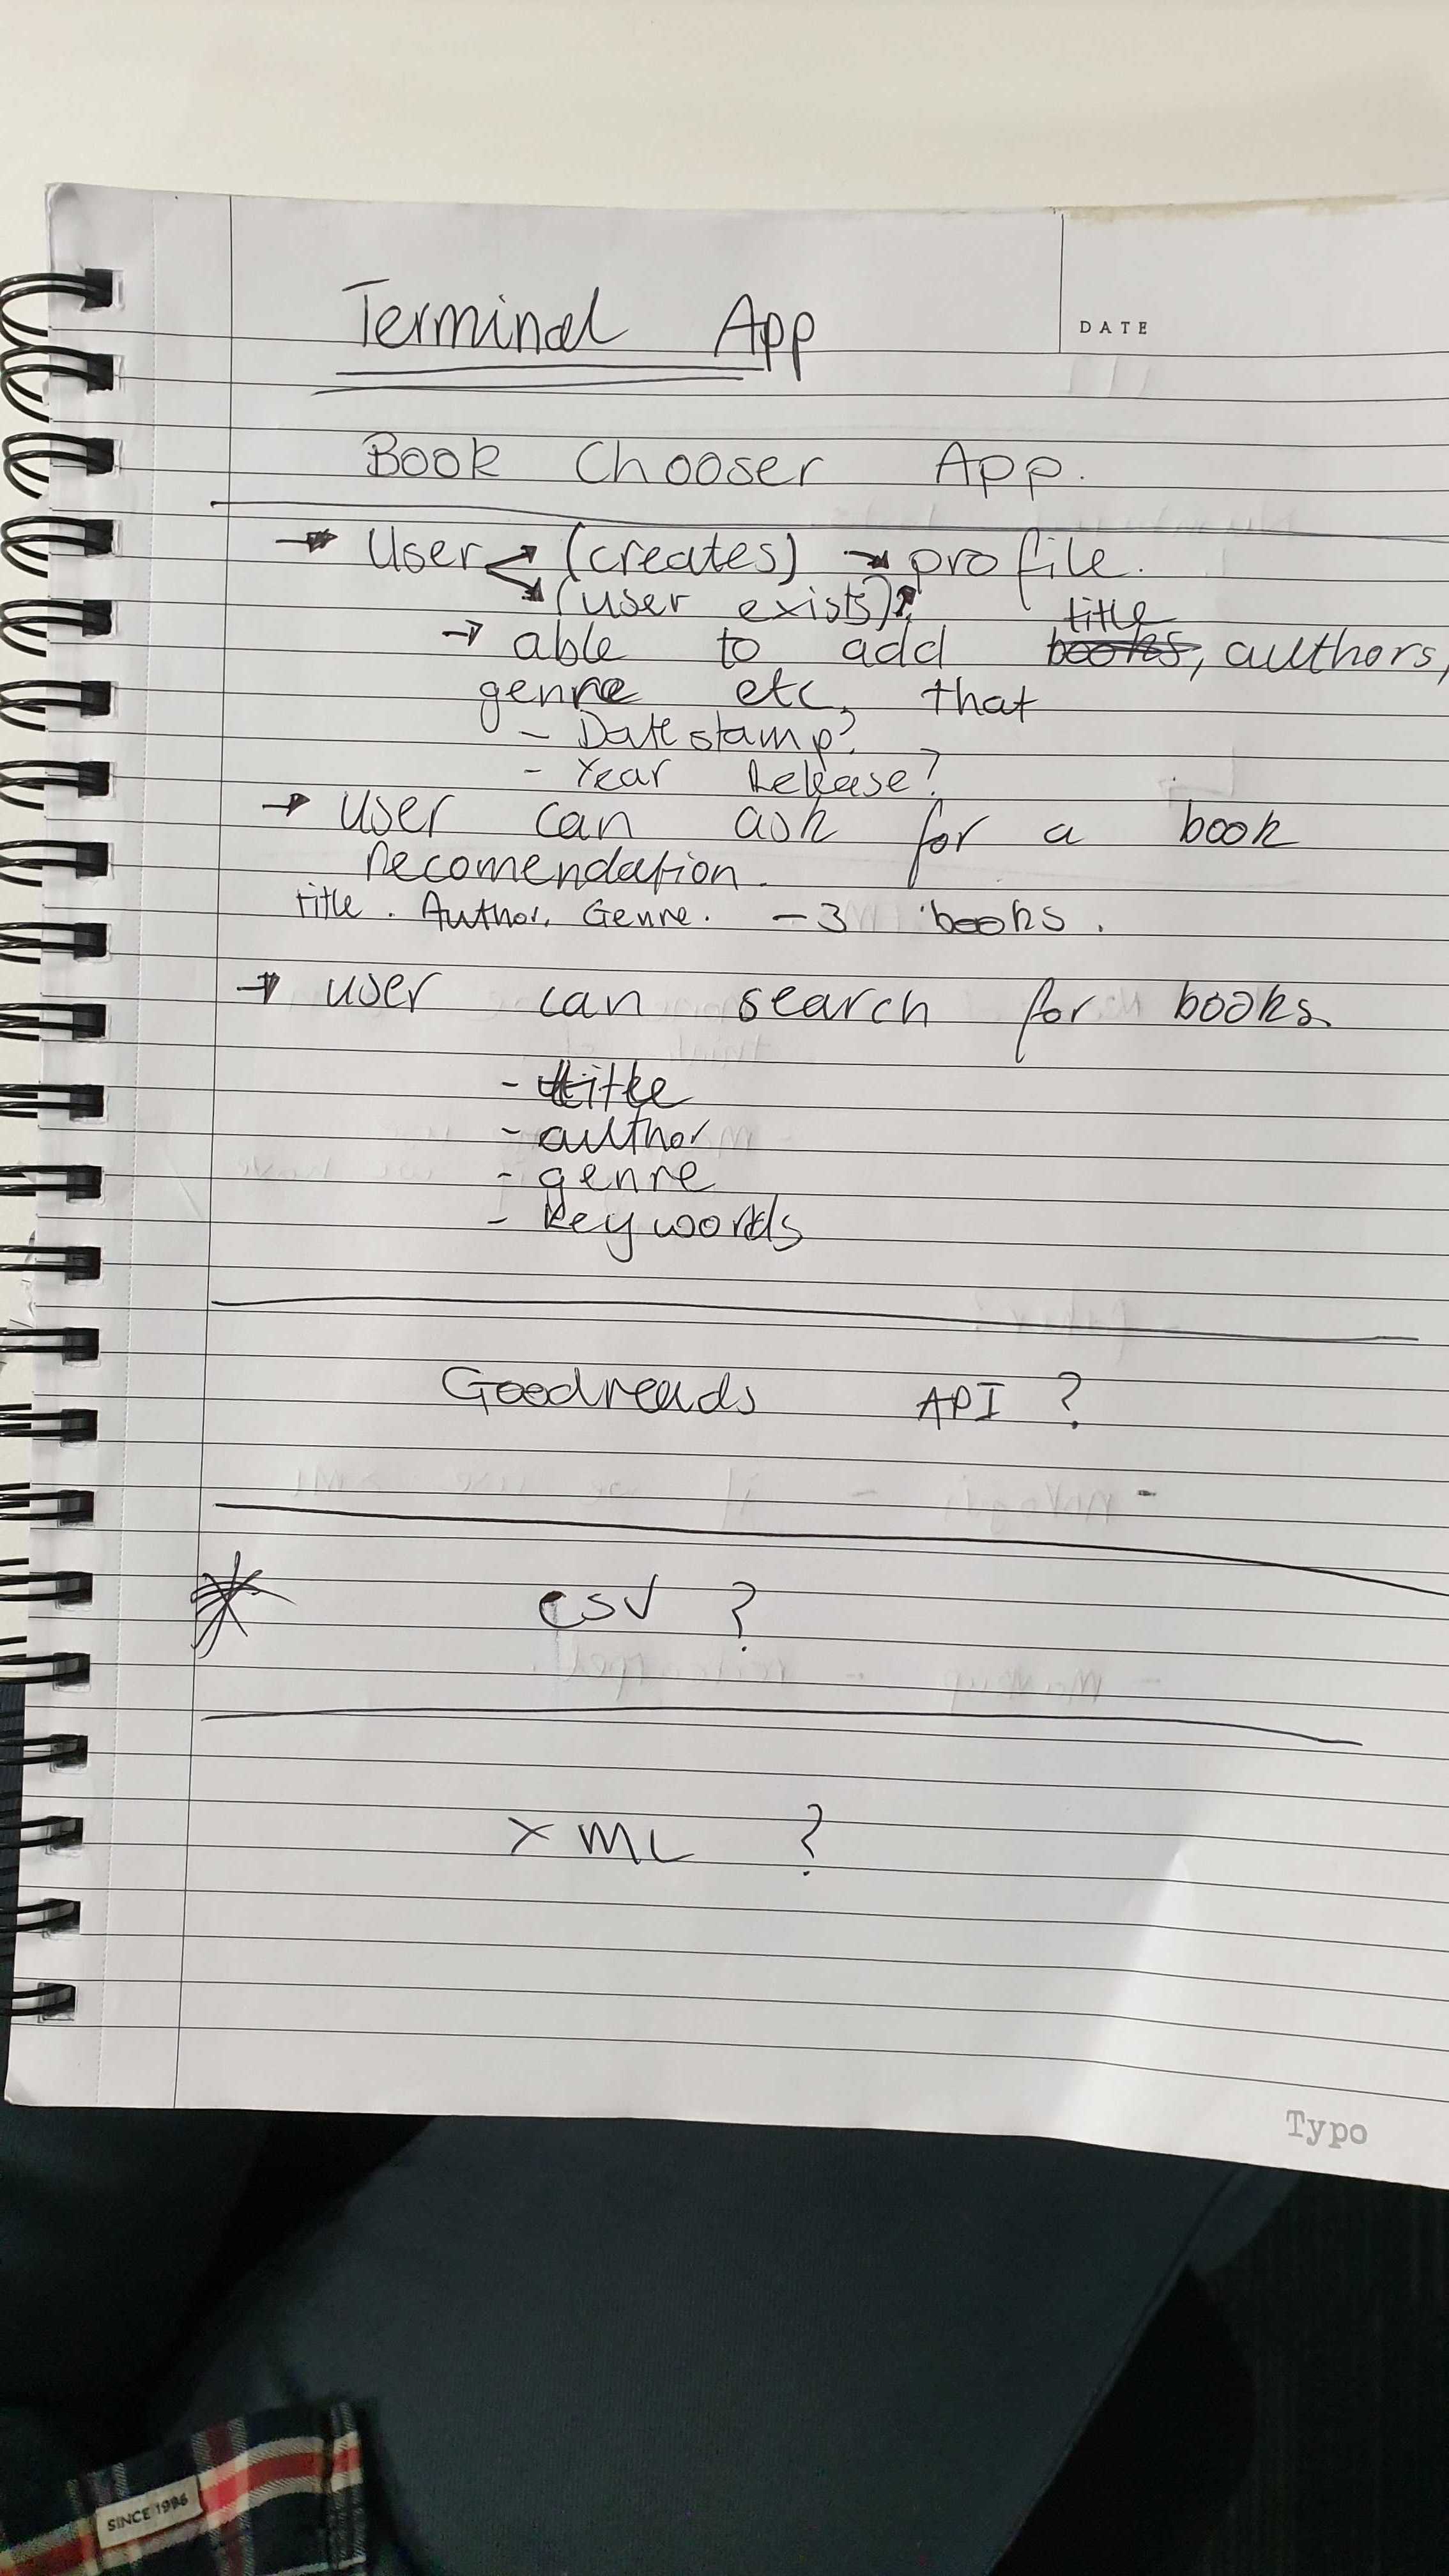 Terminal App
DATE
Book Chooser App.
→ User (creates) → profile.
(user exists)
title
→ able to add books, authors,
genre etc, that
- Date stamp?
- Year Release?
→ user can ask for a book
recomendation.
title. Author. Genre. - 3 books.
→ user can search for books.
- title
- author
- genre
- keywords
Goodreads API ?
* CSV ?
XML ?
Typo
SINCE 1996